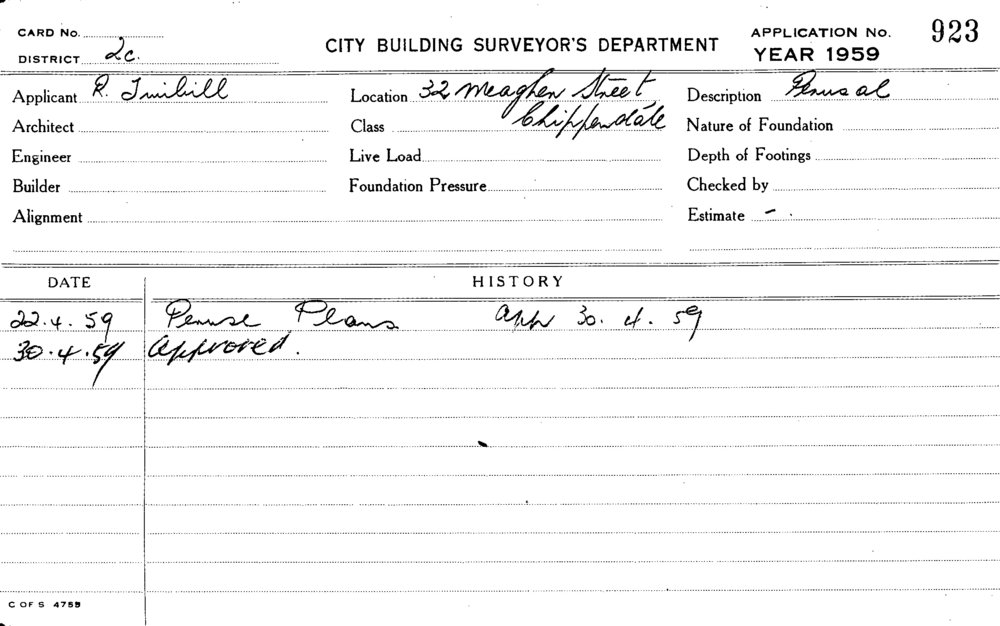 CARD No.
DISTRICT 2c.
CITY BUILDING SURVEYOR'S DEPARTMENT
APPLICATION No. 923
YEAR 1959
Applicant R. Location 32 Meagher Street Description Perusal
Architect Class Chippendale Nature of Foundation
Engineer Live Load Depth of Footings
Builder Foundation Pressure Checked by
Alignment Estimate -
DATE HISTORY
22.4.59 Peruse Plans app 30.4.59
30.4.59 Approved.
C OF S 4759